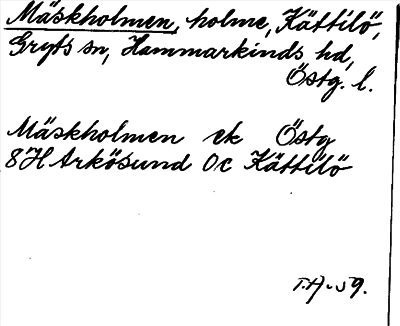 Mäskholmen, holme, Kättilö,
Gryts sn, Hammarkinds hd,
Östg. l.
Mäskholmen ek Östg
8H Arkösund 0c Kättilö
T.A. -59.